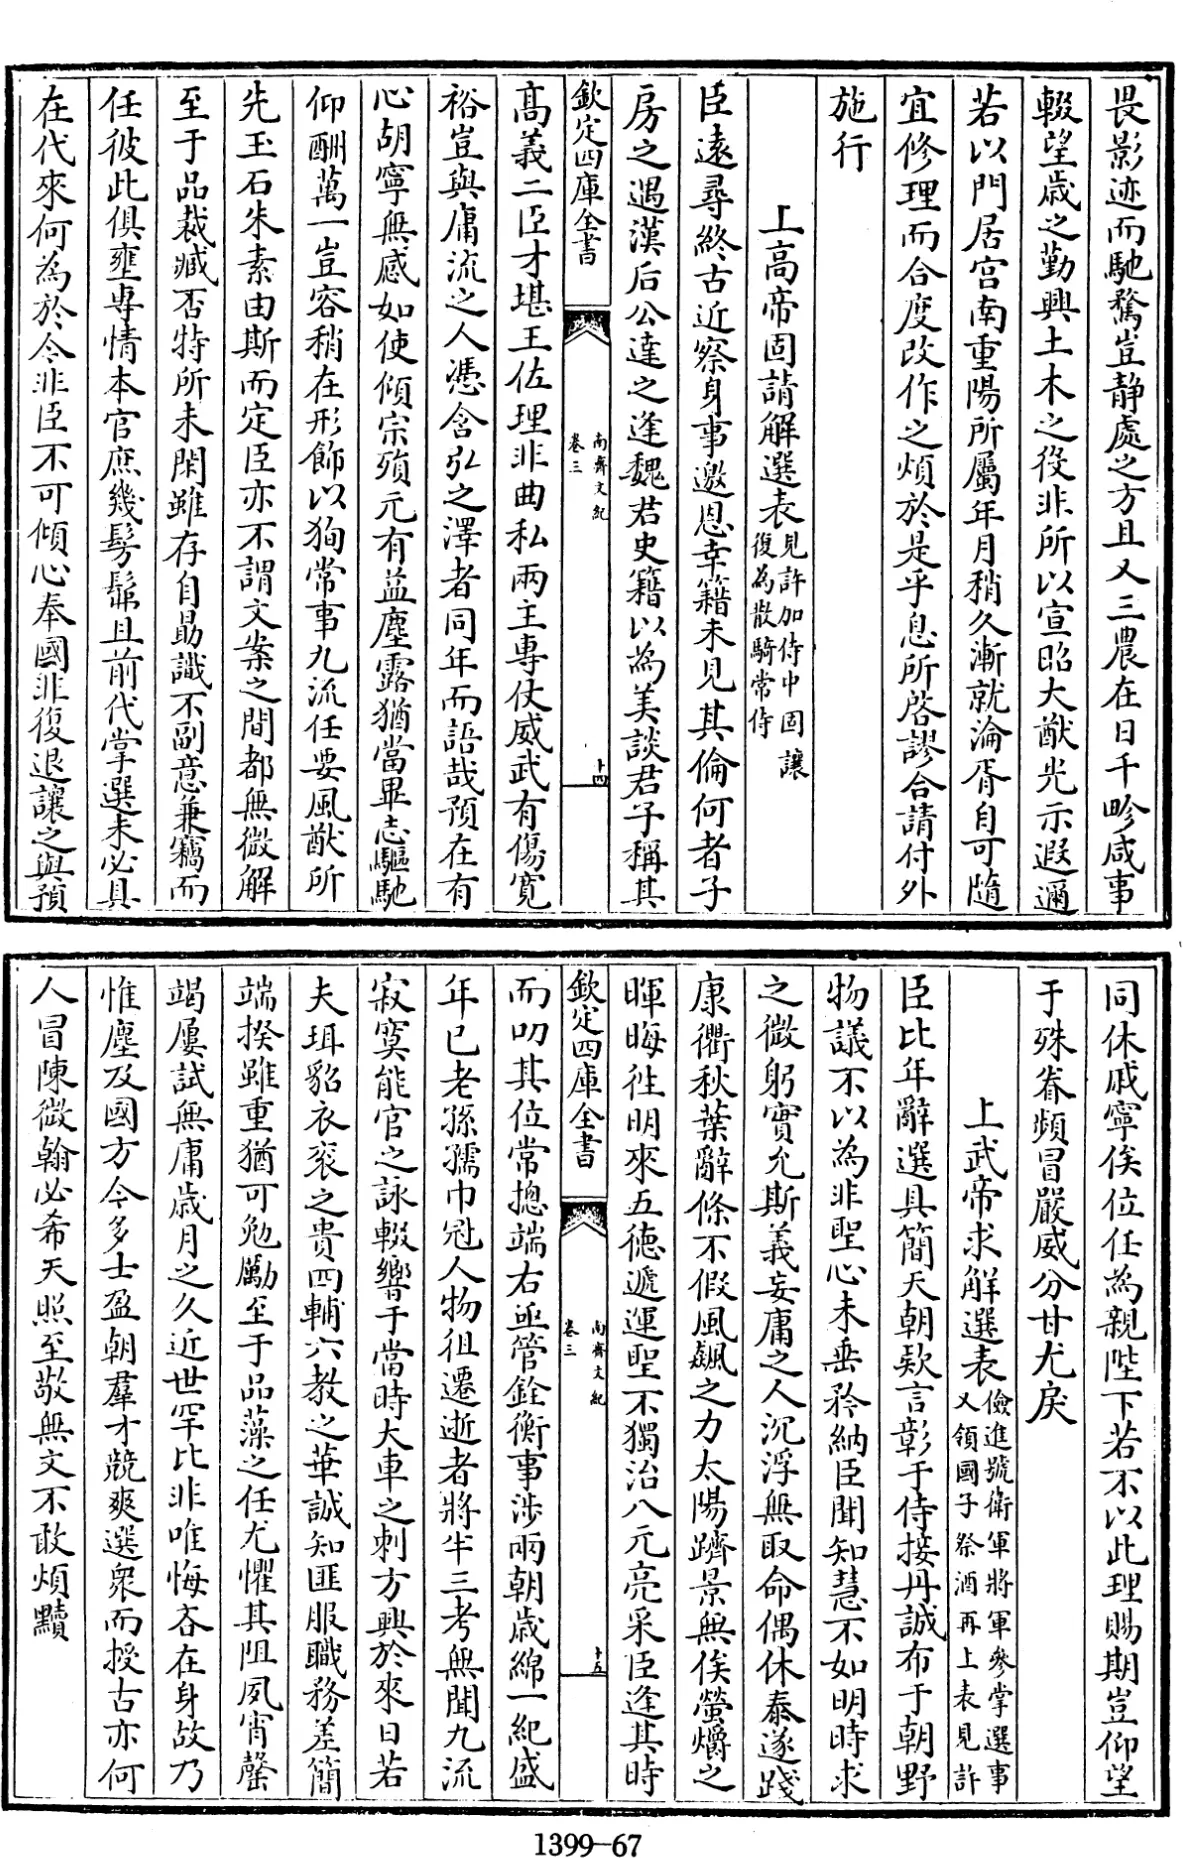 畏影迹而馳騖豈静處之方且又三農在日千畛咸事
輟望歳之勤興土木之役非所以宣昭大猷光示遐邇
若以門居宫南重陽所屬年月稍久漸就淪胥自可隨
宜修理而合度改作之煩於是乎息所啓謬合請付外
施行
上高帝固請解選表見許加侍中固讓
復為散騎常侍
臣遠尋終古近察身事邀恩幸籍未見其倫何者子
房之遇漢后公達之逢魏君史籍以為美談君子稱其
欽定四庫全書
南齊文紀
卷三
十四
髙義二臣才堪王佐理非曲私兩主專仗威武有傷寛
裕豈與庸流之人憑含弘之澤者同年而語哉預在有
心胡寧無感如使傾宗殞元有益塵露猶當畢志驅馳
仰酬萬一豈容稍在形飾以狥常事九流任要風猷所
先玉石朱素由斯而定臣亦不謂文案之間都無微解
至于品裁臧否特所未閑雖存自勗識不副意兼竊而
任彼此俱壅專情本官庶幾髣髴且前代掌選未必具
在代來何為於今非臣不可傾心奉國非復退讓之與預
同休戚寧俟位任為親陛下若不以此理賜期豈仰望
于殊眷頻冒嚴威分甘尤戾
上武帝求解選表儉進號衛軍將軍參掌選事
又領國子祭酒再上表見許
臣比年辭選具簡天朝欵言彰于侍接丹誠布于朝野
物議不以為非聖心未垂矜納臣聞知慧不如明時求
之微躬實允斯義妄庸之人沉浮無取命偶休泰遂踐
康衢秋葉辭條不假風飆之力太陽躋景無俟螢爝之
暉晦徃明來五徳遞運聖不獨治八元亮采臣逢其時
欽定四庫全書
南齊文紀
卷三
十五
而叨其位常揔端右亟管銓衡事涉兩朝歳綿一紀盛
年已老孫孺巾冠人物徂遷逝者將半三考無聞九流
寂寞能官之詠輟響于當時大車之刺方興於來日若
夫珥貂衣衮之貴四輔六教之華誠知匪服職務差簡
端揆雖重猶可勉勵至于品藻之任尤懼其阻夙宵罄
竭屢試無庸歳月之久近世罕比非唯悔吝在身故乃
惟塵及國方今多士盈朝羣才競爽選衆而授古亦何
人冒陳微翰必希天照至敬無文不敢煩黷
1399—67